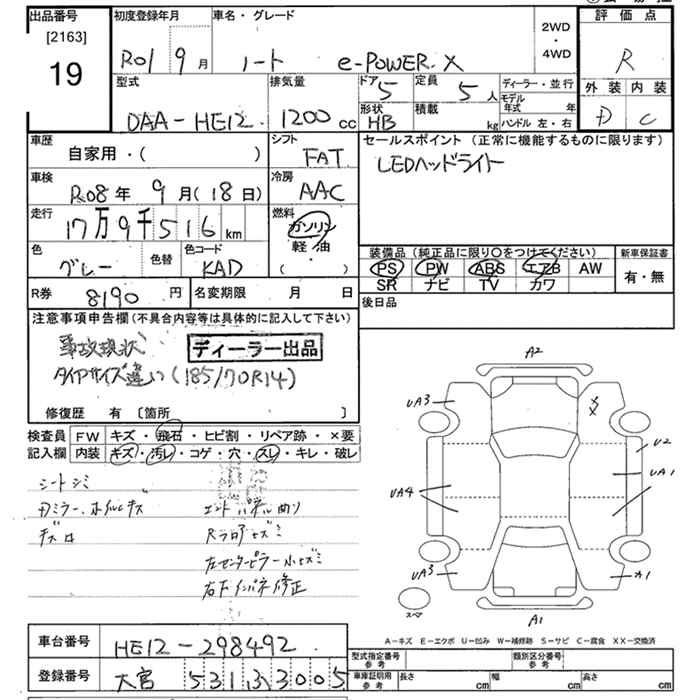 出品番号 初度登録年月 車名・グレード 2WD・4WD 評価点
[2163]
19
R01 9月 ノート e-POWER X R
型式 排気量 ドア 5 定員 5人 ディーラー・並行 外装 内装
DAA-HE12 1200cc 形状 HB 積載 kg モデル年式 年 ハンドル 左・右 D C
車歴 シフト セールスポイント(正常に機能するものに限ります)
自家用・( ) FAT LEDヘッドライト
車検 冷房
R08年 9月(18日) AAC
走行 燃料
17万9千516km ガソリン
軽・油
( )
色 色替 色コード 装備品(純正品に限り○をつけてください) 新車保証書
グレー KAD PS PW ABS エアB AW 有・無
SR ナビ TV カワ
R券 8190円 名変期限 月 日 後日品
注意事項申告欄(不具合内容等は具体的に記入して下さい)
事故現状 ディーラー出品
タイヤサイズ違い(185/70R14)
修復歴 有 〔箇所 〕
検査員 FW キズ・飛石・ヒビ割・リペア跡・×要
記入欄 内装 キズ・汚レ・コゲ・穴・スレ・キレ・破レ
シートシミ
ドアミラー、ホイルキズ エンドパネル曲り
キズ
A2
UA3
U2
UA1
UA4
UA3
A1
スペア
A1
A-キズ E-エクボ U-凹み W-補修跡 S-サビ C-腐食 XX-交換済
車台番号 HE12-298492
型式指定番号 参考 類別区分番号 参考
登録番号 大宮 531 さ 3005
車庫証明用 参考 長さ cm 幅 cm 高さ cm